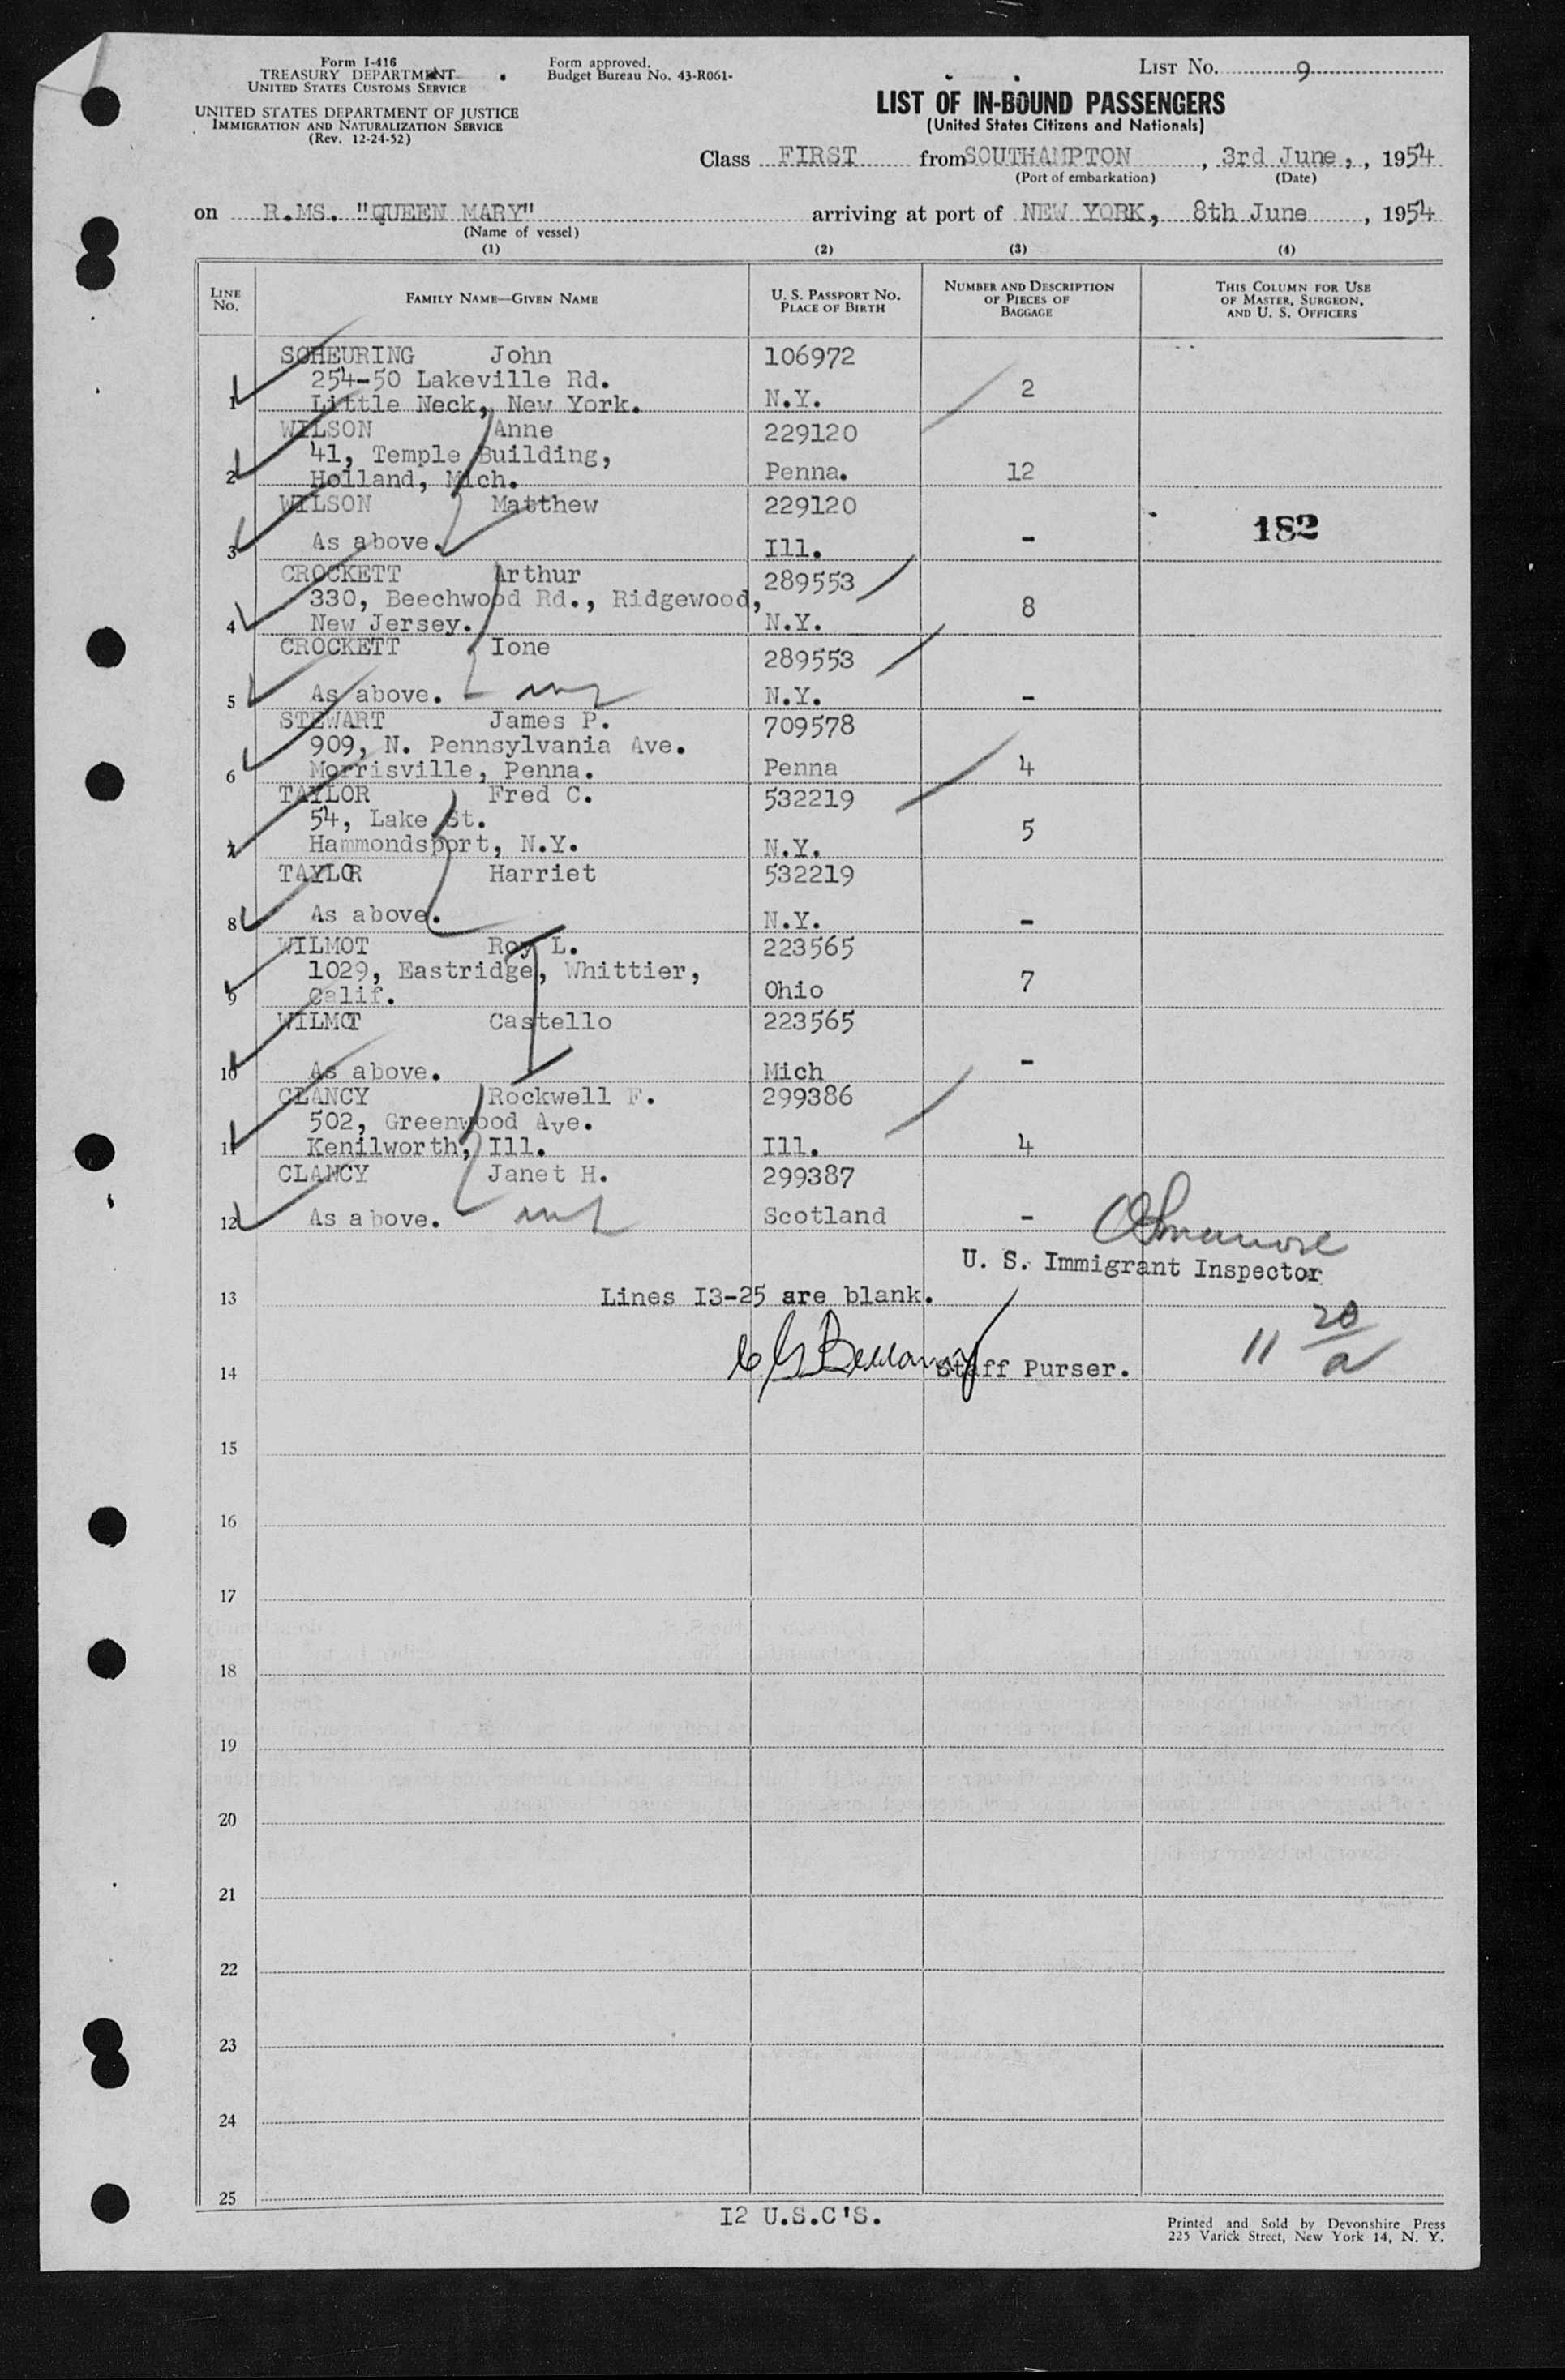 Form I-416
TREASURY DEPARTMENT
UNITED STATES CUSTOMS SERVICE
UNITED STATES DEPARTMENT OF JUSTICE
IMMIGRATION AND NATURALIZATION SERVICE
(Rev. 12-24-52)
Form approved.
Budget Bureau No. 43-R061-
LIST No. 9
LIST OF IN-BOUND PASSENGERS
(United States Citizens and Nationals)
Class FIRST from SOUTHAMPTON, 3rd June, , 1954
(Port of embarkation) (Date)
on R.MS. "QUEEN MARY" arriving at port of NEW YORK, 8th June, 1954
(Name of vessel)
(1) (2) (3) (4)
LINE No. FAMILY NAME—GIVEN NAME U. S. PASSPORT No. PLACE OF BIRTH NUMBER AND DESCRIPTION OF PIECES OF BAGGAGE THIS COLUMN FOR USE OF MASTER, SURGEON, AND U. S. OFFICERS
SCHEURING John 106972
254-50 Lakeville Rd. 2
1 Little Neck, New York. N.Y.
WILSON Anne 229120
41, Temple Building,
2 Holland, Mich. Penna. 12
WILSON Matthew 229120
182
3 As above. Ill. -
CROCKETT Arthur 289553
330, Beechwood Rd., Ridgewood, 8
4 New Jersey. N.Y.
CROCKETT Ione 289553
5 As above. N.Y. -
STEWART James P. 709578
909, N. Pennsylvania Ave.
6 Morrisville, Penna. Penna 4
TAYLOR Fred C. 532219
54, Lake St. 5
7 Hammondsport, N.Y. N.Y.
TAYLOR Harriet 532219
8 As above. N.Y. -
WILMOT Roy L. 223565
1029, Eastridge, Whittier, 7
9 Calif. Ohio
WILMOT Castello 223565
10 As above. Mich -
CLANCY Rockwell F. 299386
502, Greenwood Ave.
11 Kenilworth, Ill. Ill. 4
CLANCY Janet H. 299387
12 As above. Scotland -
U. S. Immigrant Inspector
13 Lines I3-25 are blank.
11 20/a
14 Staff Purser.
15
16
17
18
19
20
21
22
23
24
25
I2 U.S.C'S.
Printed and Sold by Devonshire Press
225 Varick Street, New York 14, N. Y.